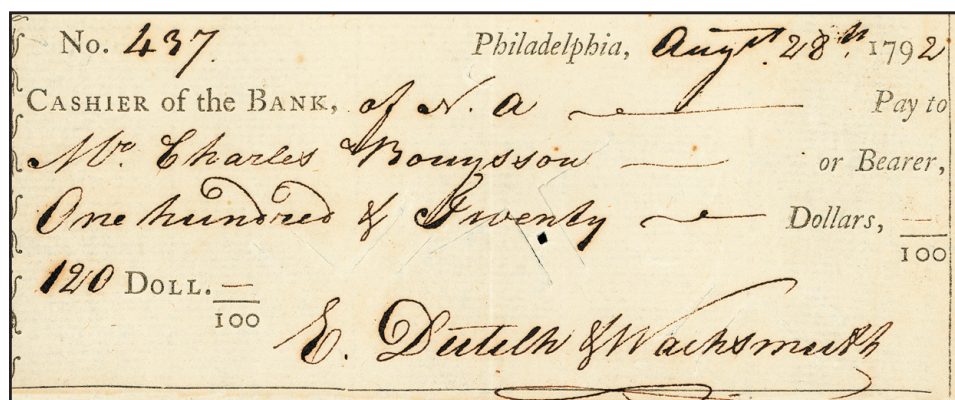 No. 437. Philadelphia, Augst. 28th. 1792
CASHIER of the BANK, of N. A Pay to
Mr. Charles Bouysson or Bearer,
One hundred & Twenty Dollars, —/100
120 DOLL. —/100
E. Dutilh & Wachsmuth